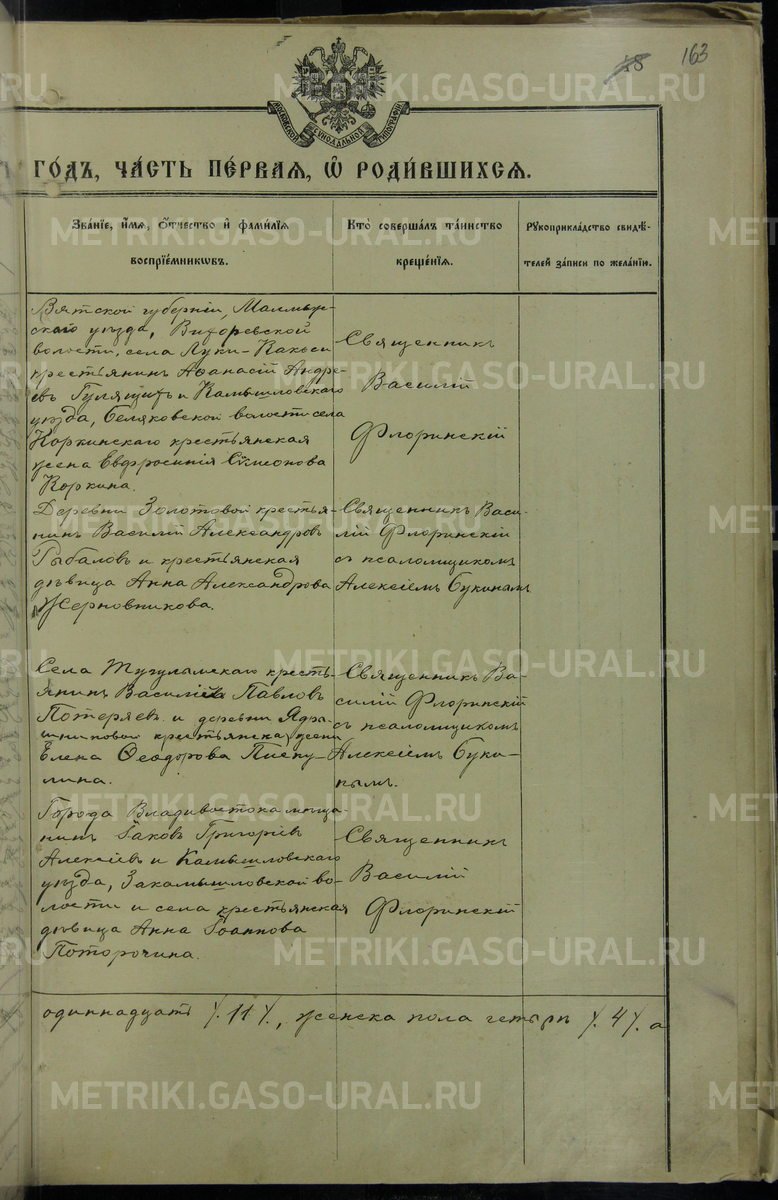 163
МОСКОВСКОЙ СѴНОДАЛЬНОЙ ТИПОГРАФІИ
ГО́ДЪ, ЧА́СТЬ ПЕ́РВАЯ, Ѽ РОДИ́ВШИХСЯ.
Зва́ніе, и́мя, о́тчество и҆ фами́лія
воспріе́мниковъ.
Кто̀ соверша́лъ та́инство
креще́нія.
Рукоприкла́дство свидѣ́-
телей за́писи по жела́нію.
Вятской губерніи, Малмыж-
скаго уѣзда, Вихоревской
волости, села Луки-
крестьянинъ Аѳанасій Андре-
евъ и Камышловскаго
уѣзда, Беляковской волости села
Коркинскаго крестьянская
жена Евфросинія Сѵмеонова
Коркина.
Священникъ
Василій
Флоринскій
Деревни Золотовой крестья-
нинъ Василій Александровъ
Рыбаловъ и крестьянская
дѣвица Анна Александрова
Жерновникова.
Священникъ Васи-
лій Флоринскій
съ псаломщикомъ
Алексіемъ Букинымъ
Села Тугулымскаго кресть-
янинъ Василій Павловъ
Потеряевъ и деревни Ядра-
шниковой крестьянска жена
Елена Ѳеодорова
Священникъ Ва-
силій Флоринскій
съ псаломщикомъ
Алексіемъ Буки-
нымъ.
Города Владивостока мѣща-
нинъ Іаковъ Григоріевъ
Алексѣевъ и Камышловскаго
уѣзда, Закамышловской во-
лости и села крестьянская
дѣвица Анна Іоаннова
Поторочина.
Священникъ
Василій
Флоринскій
одиннадцать /. 11 /., женска пола четыре /. 4 /. а
METRIKI.GASO-URAL.RU